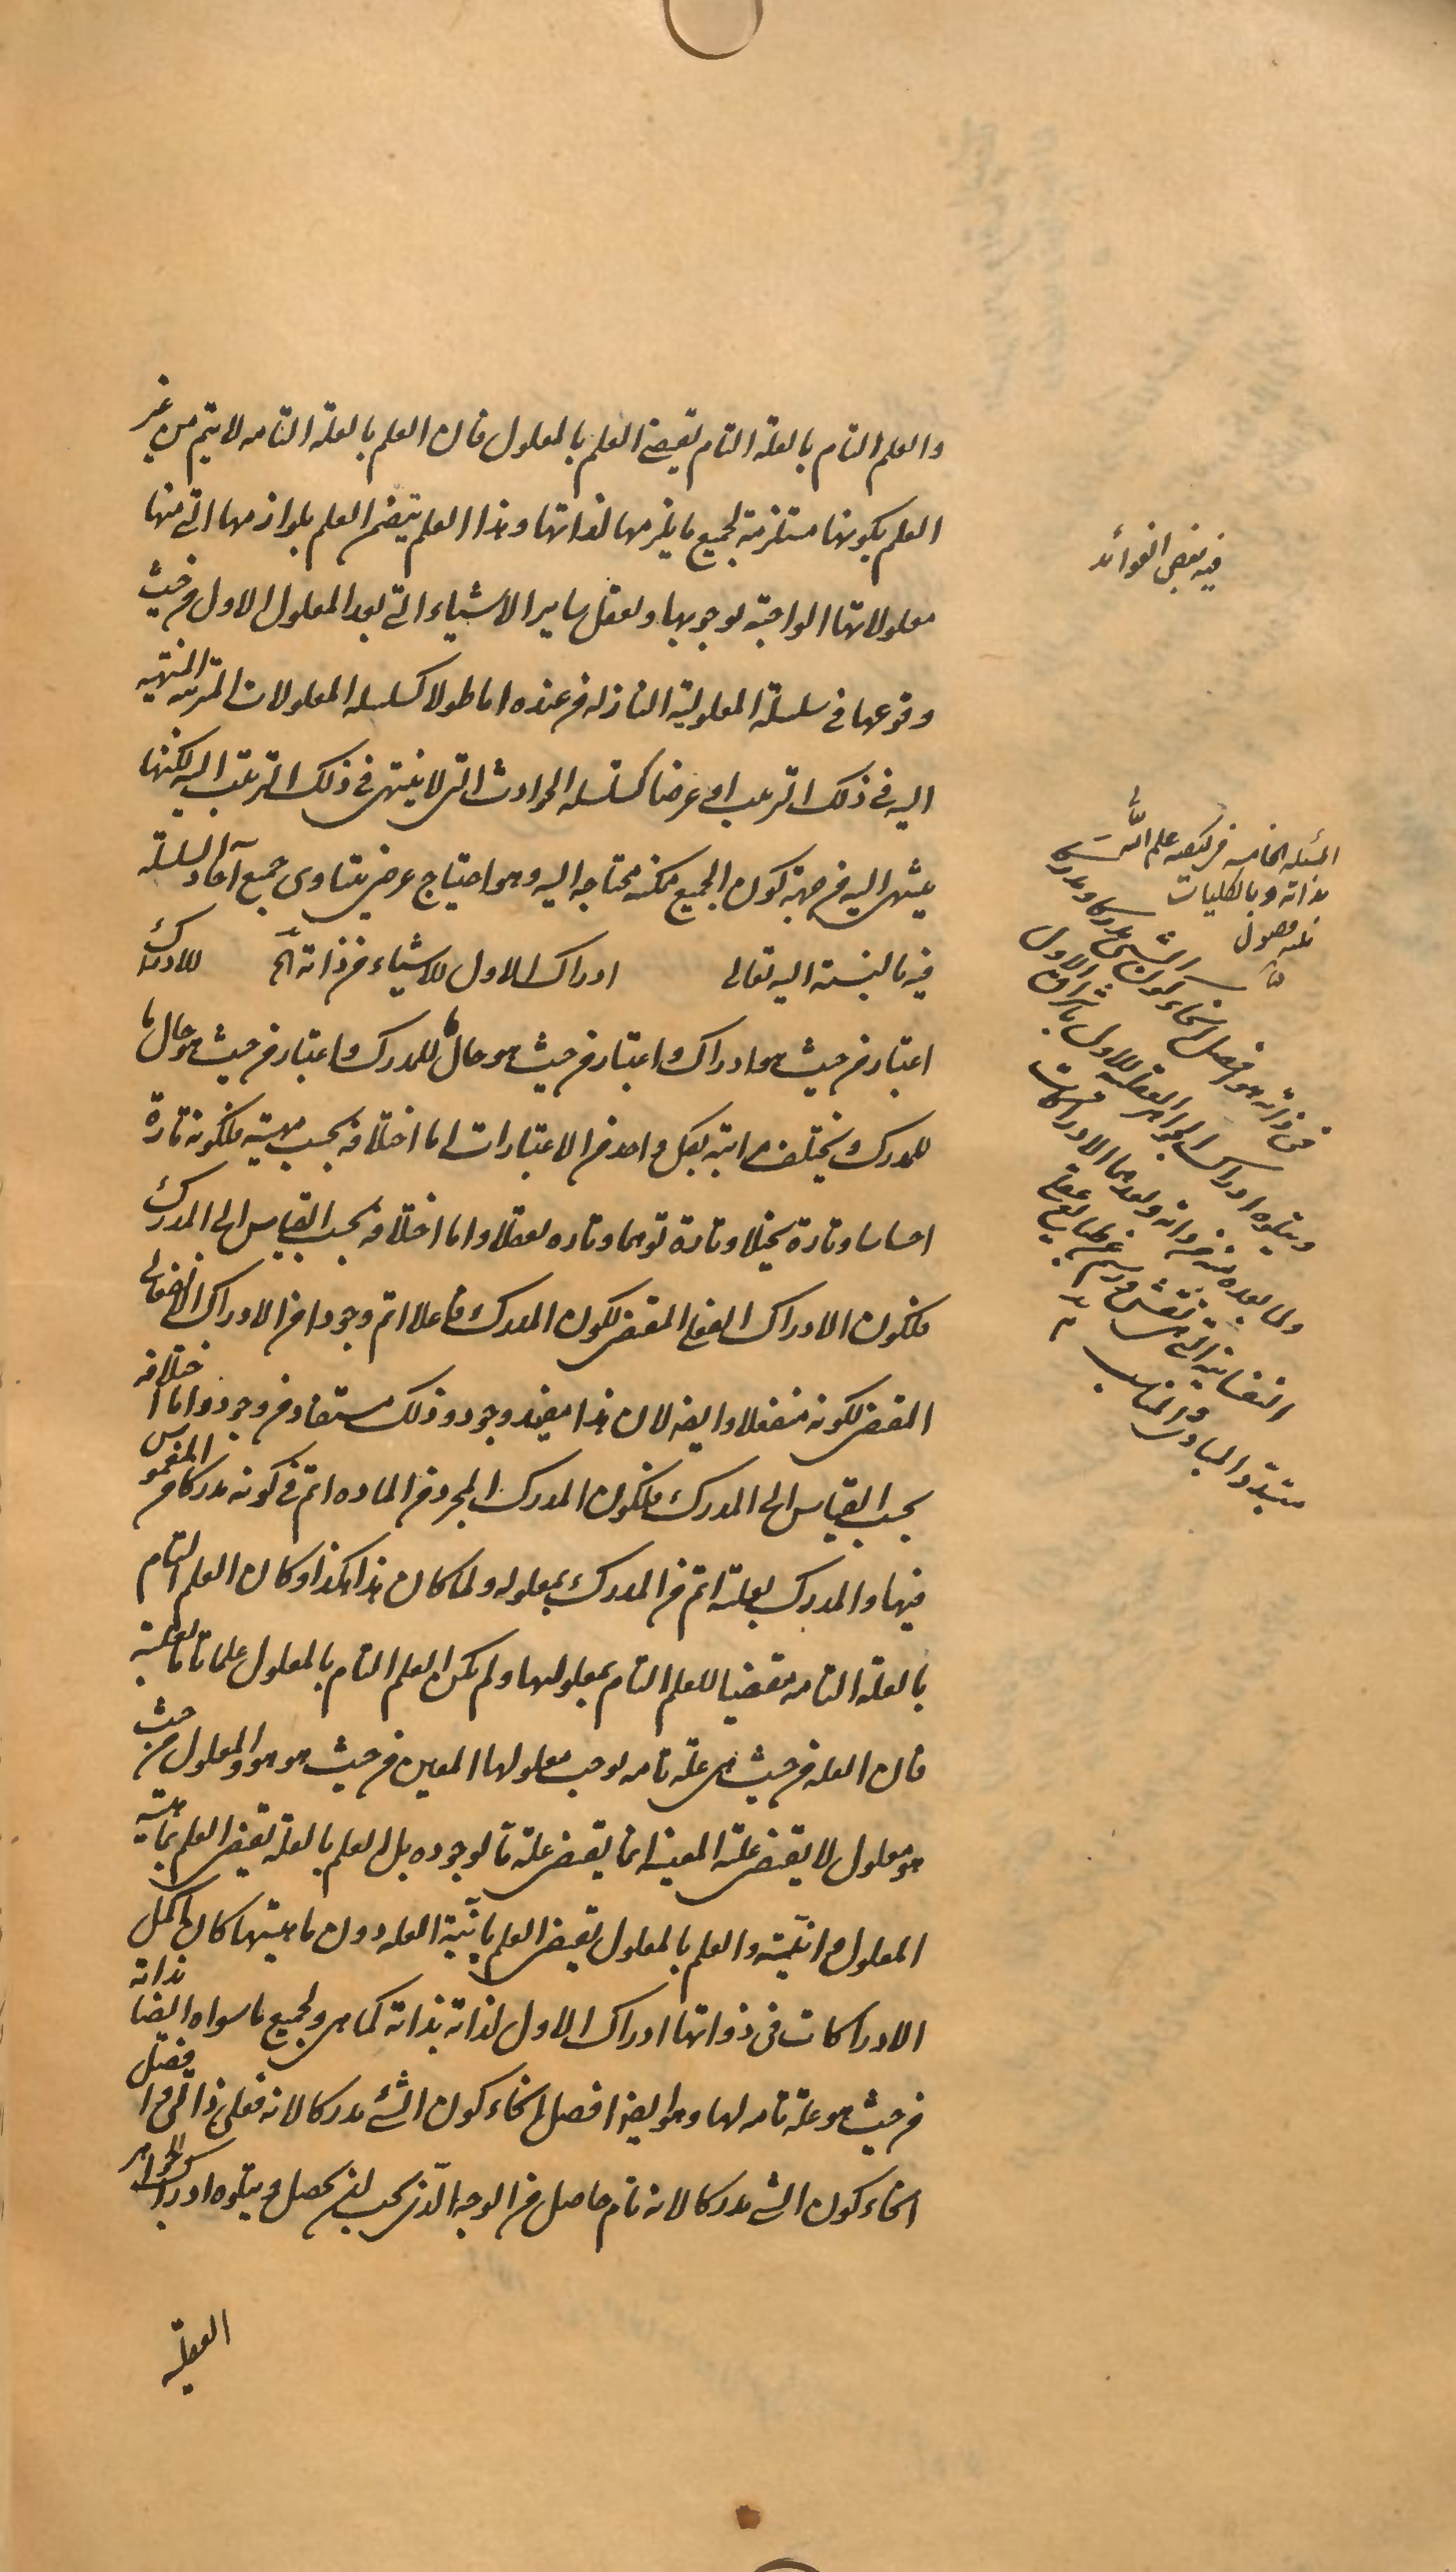 والعلم التام بالعلة التام يقتضى العلم بالمعلول فان العلم بالعلة التامه لا يتم من غير
العلم بكونها مستلزمة لجميع ما يلزمها لذاتها وهذا العلم يتضمن العلم بلوازمها التى منها
معلولاتها الواجبة بوجوبها وتعقل ساير الاشياء التى بعد المعلول الاول من حيث
وقوعها فى سلسلة المعلولية النازله من عنده اما طولا كسلسله المعلولات المترتبه المنتهيه
اليه فى ذلك الترتيب او عرضا كسلسله الحوادث التى لا ينتهى فى ذلك الترتيب اليه لكنها
ينتهى اليه من جهة كون الجميع ممكنه محتاجه اليه وهو احتياج عرضى يتساوى جميع آحاد السلسلة
فيه بالنسبة اليه تعالى ادراك الاول للاشياء من ذاته الخ للادراك
اعتبار من حيث هو ادراك واعتبار من حيث هو حال ما للمدرك واعتبار من حيث هو حال ما
للمدرك ويختلف مراتبه بكل واحد من الاعتبارات اما اختلافه بحسب مهيته فلكونه تارة
احساسا وتارة تخيلا وتارة توهما وتاره تعقلا واما اختلافه بحسب القياس الى المدرك
فلكون الادراك الفعلى المقتضى لكون المدرك فاعلا اتم وجودا من الادراك الانفعالى
المقتضى لكونه منفعلا وايضه لان هذا مفيد وجود وذلك مستفاد من وجود واما اختلافه
بحسب القياس الى المدرك فلكون المدرك المجرد من الماده اتم فى كونه مدركا من المغموس
فيها والمدرك بعلته اتم من المدرك بمعلوله ولما كان هذا هكذا وكان العلم التام
بالعلة التامه مقتضيا للعلم التام بمعلولها ولم يكن العلم التام بالمعلول علما تاما بعلته
فان العله من حيث هى علة تامه توجب معلولها المعين من حيث هو هو والمعلول من حيث
هو معلول لا يقتضى علته المعينه انما يقتضى علة ما لوجوده بل العلم بالعلة يقتضى العلم بماهية
المعلول وانيّته والعلم بالمعلول يقتضى العلم بانّية العله دون ماهيتها كان اكمل
الادراكات فى ذواتها ادراك الاول لذاته بذاته كما هى ولجميع ما سواه ايضا بذاته
من حيث هو علة تامه لها وهو ايضه افضل انحاء كون الشئ مدركا لانه فعلى ذاتى وافضل
انحاء كون الشئ مدركا لانه تام حاصل من الوجه الّذى يجب ان يحصل ويتلوه ادراك الجواهر
العقليّه
فيه بعض الفوائد
المسئله الخامسه فى كيفيه علم الله تعالى
بذاته وبالكليات
فيه فصول
فى ذاته هو افضل انحاء كون الشئ مدركا ومدركا
ويتلوه ادراك الجواهر العقليه للاول باشراق الاول
ولما بعده منه من ذاته وبعدهما الادراكات
النفسانيه التى هى نقش ورسم عن طابع عقلى
متبدّد المبادى والمناسب